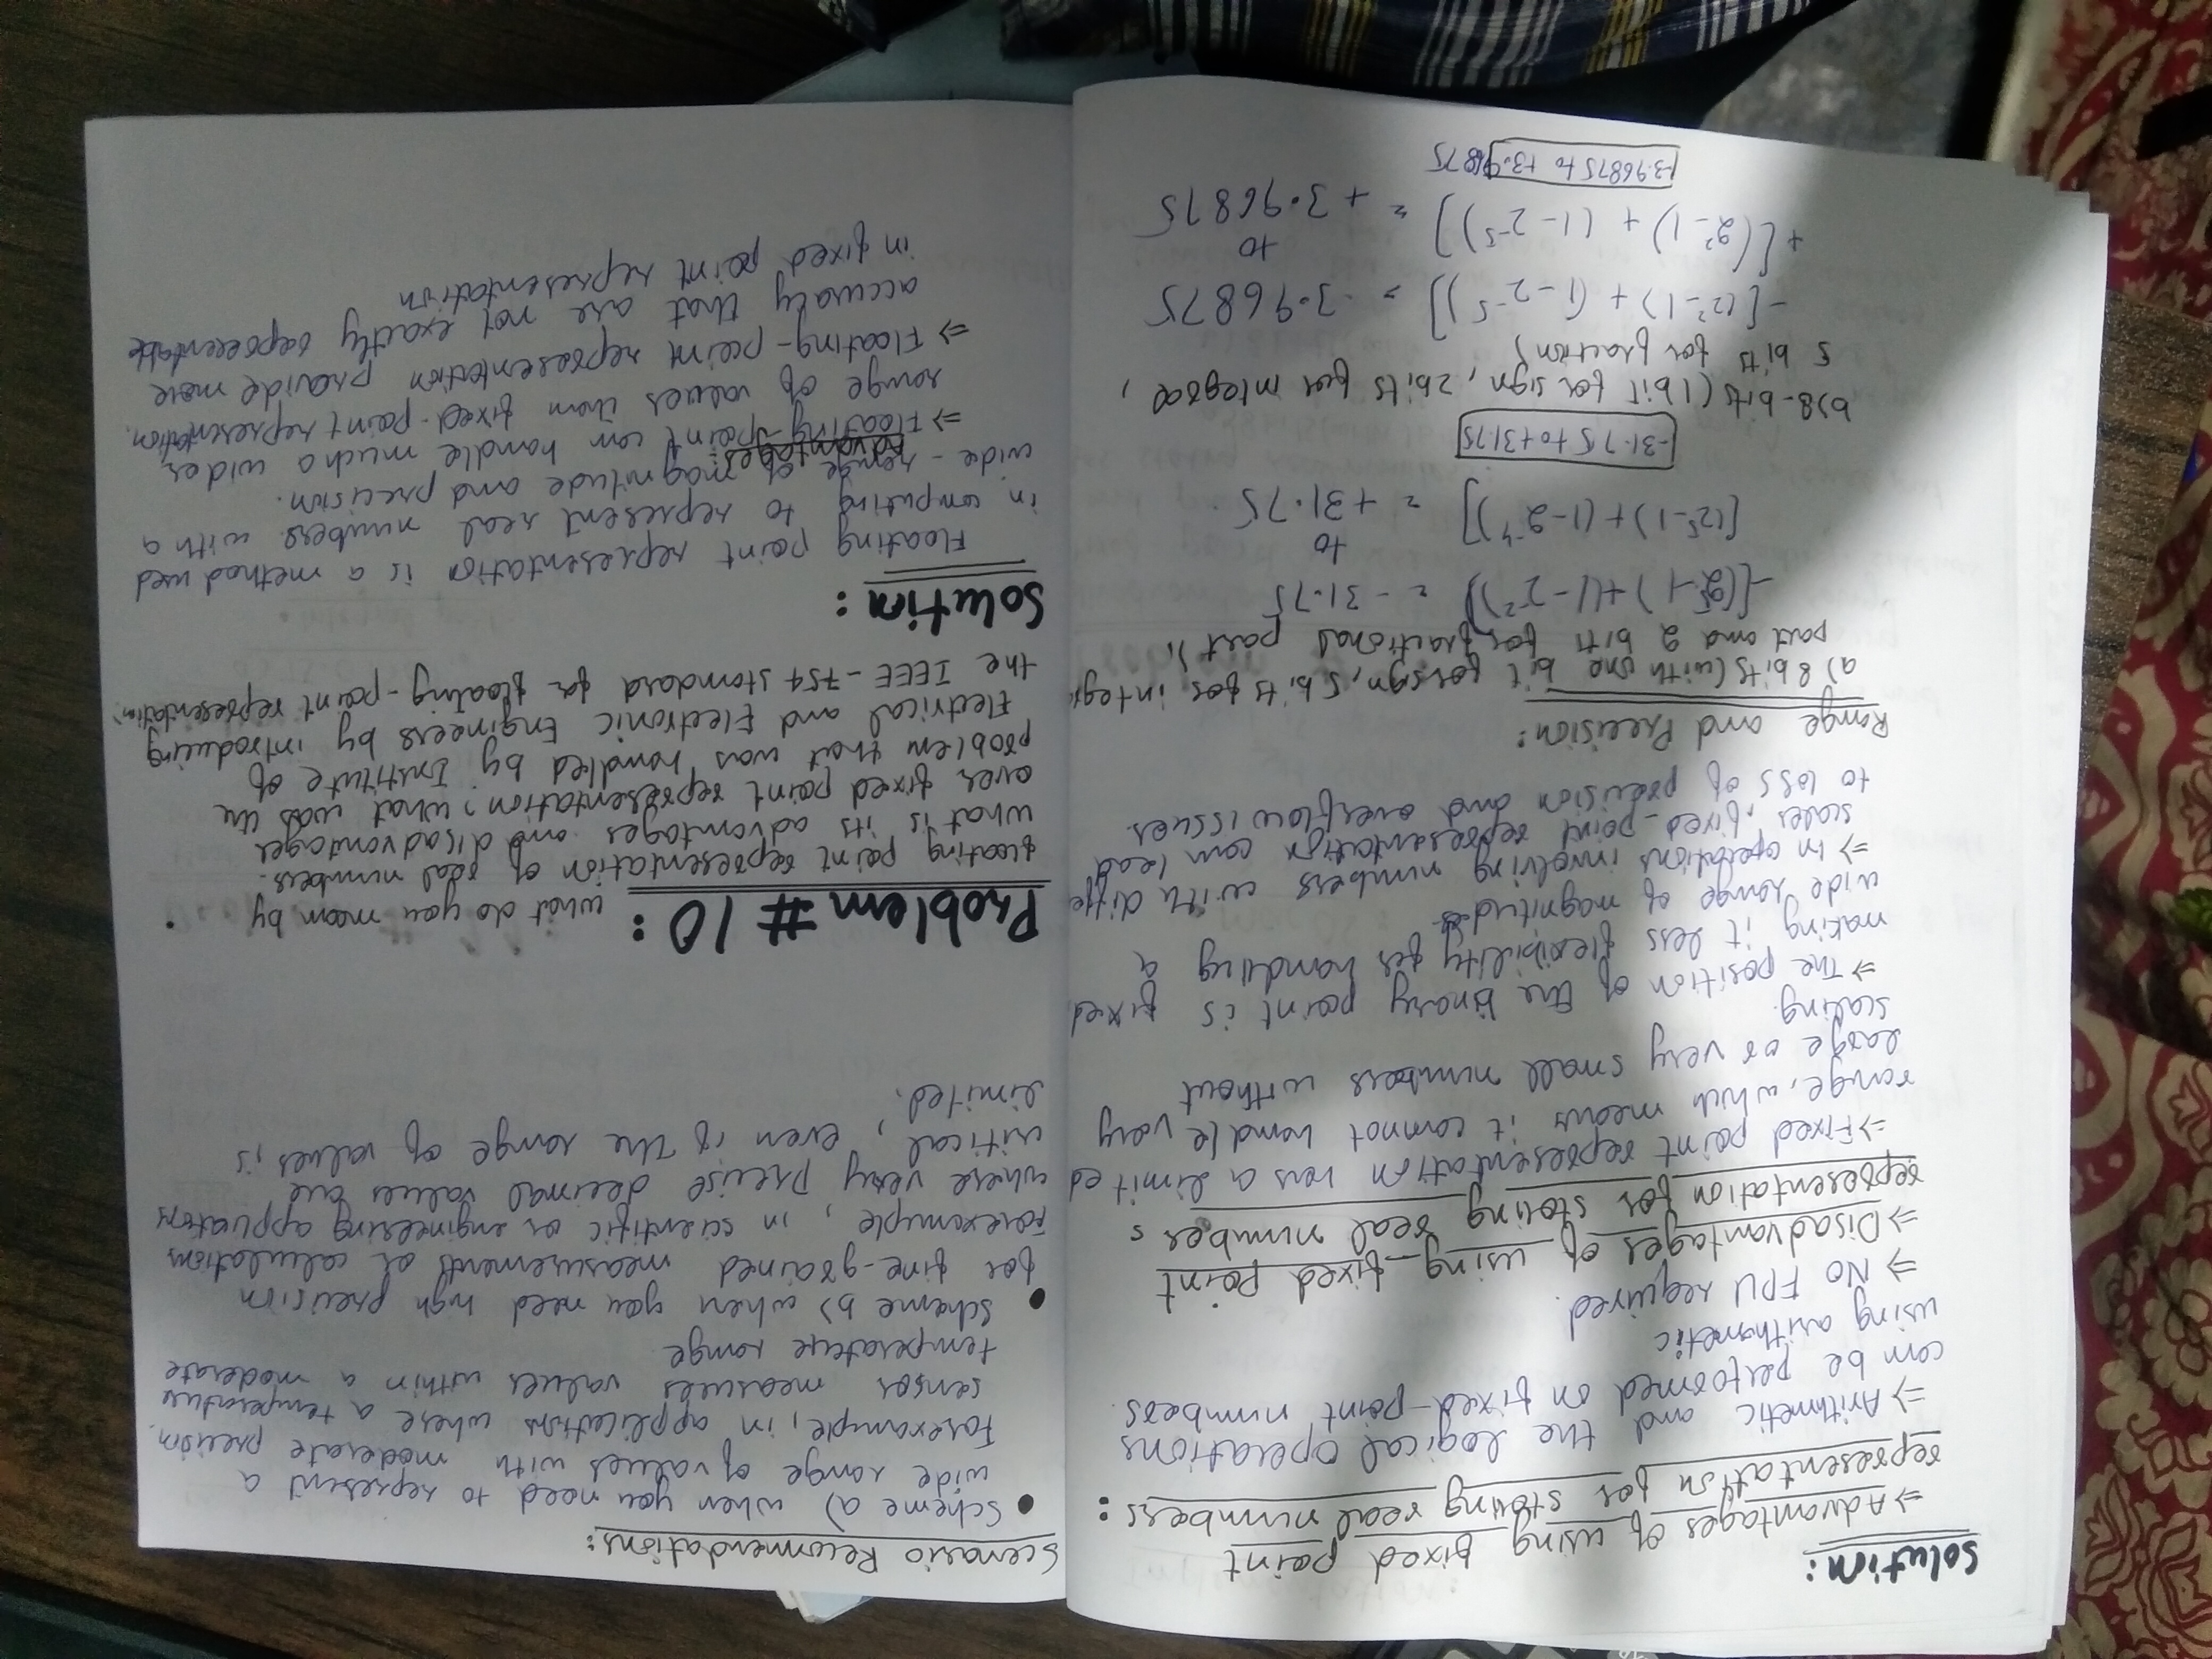 Solution:
⇒ Advantages of using fixed point
representation for storing real numbers:
⇒ Arithmetic and the logical operations
can be performed on fixed-point numbers.
using arithmetic
⇒ No FPU required.
⇒ Disadvantages of using fixed point
representation for storing real numbers
⇒ Fixed point representation has a limited
range, which means it cannot handle very
large or very small numbers without
scaling.
⇒ The position of the binary point is fixed
making it less flexibility for handling a
wide range of magnitudes
⇒ In operations involving numbers with diffe
scales, fixed-point representation can lead
to loss of precision and overflow issues.
Range and Precision:
a) 8 bits (with one bit for sign, 5 bits for integ
part and 2 bits for fractional part).
-[(2⁵-1)+(1-2⁻²)] = -31.75
to
[(2⁵-1)+(1-2⁻⁴)] = +31.75.
-31.75 to +31.75
b) 8-bits (1 bit for sign, 2 bits for integer,
5 bits for fraction)
-[(2²-1)+(1-2⁻⁵)] = -3.96875
to
+[(2²-1)+(1-2⁻⁵)] = +3.96875
-3.96875 to +3.96875
Scenario Recommendations:
• Scheme a) when you need to represent a
wide range of values with moderate precision.
For example, in applications where a temperature
sensor measures values within a moderate
temperature range
• Scheme b) when you need high precision
for fine-grained measurements or calculations
For example, in scientific or engineering applications
where very precise decimal values are
critical, even if the range of values is
limited.
Problem # 10: what do you mean by
floating point representation of real numbers.
what is its advantages and disadvantages
over fixed point representation? what was the
problem that was handled by Institute of
Electrical and Electronic Engineers by introducing
the IEEE-754 standard for floating-point representation?
Solution:
Floating point representation is a method used
in computing to represent real numbers with a
wide-range of magnitude and precision.
Advantages:
⇒ Floating-point can handle much a wider
range of values than fixed-point representation.
⇒ Floating-point representation provide more
accuraly that are not exactly representable
in fixed point representation